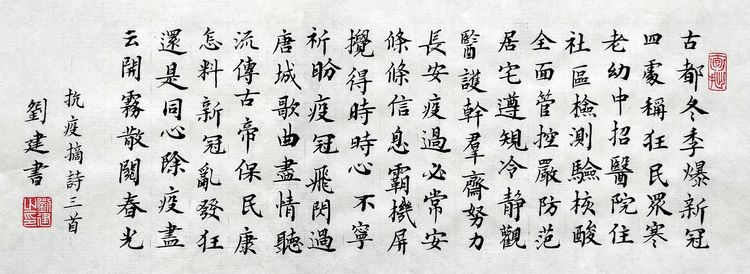 古都冬季爆新冠
四處稱狂民眾寒
老幼中招醫院住
社區檢測驗核酸
全面管控嚴防范
居宅遵規冷靜觀
醫護幹羣齋努力
長安疫過必常安
條條信息霸機屏
攪得時時心不寧
祈盼疫冠飛閃過
唐城歌曲盡情聽
流傳古帝保民康
怎料新冠亂發狂
還是同心除疫盡
云開霧散閱春光
抗疫摘詩三首
劉建書